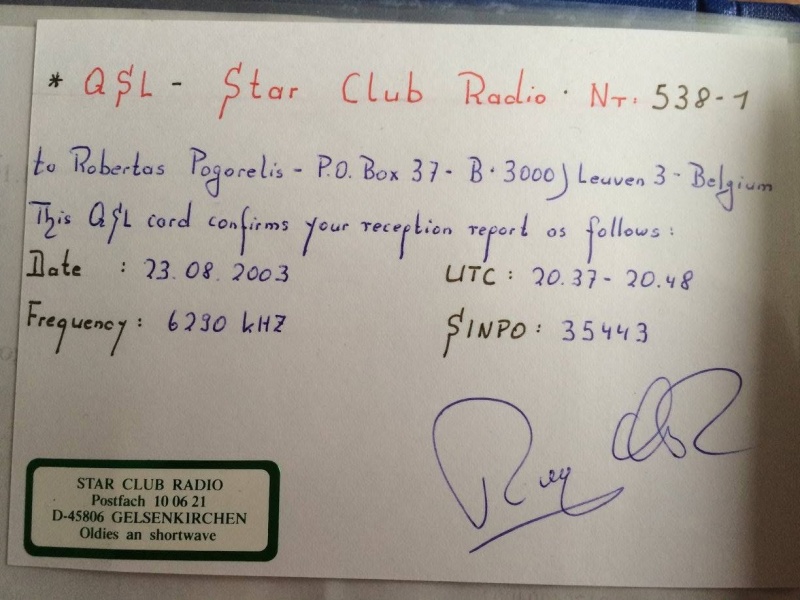 * QSL - Star Club Radio · Nr: 538-1
to Robertas Pogorelis - P.O. Box 37 - B · 3000 Leuven 3 - Belgium
This QSL card confirms your reception report as follows:
Date : 23.08.2003 UTC : 20.37 - 20.48
Frequency : 6290 kHZ SINPO : 35443
STAR CLUB RADIO
Postfach 10 06 21
D-45806 GELSENKIRCHEN
Oldies an shortwave